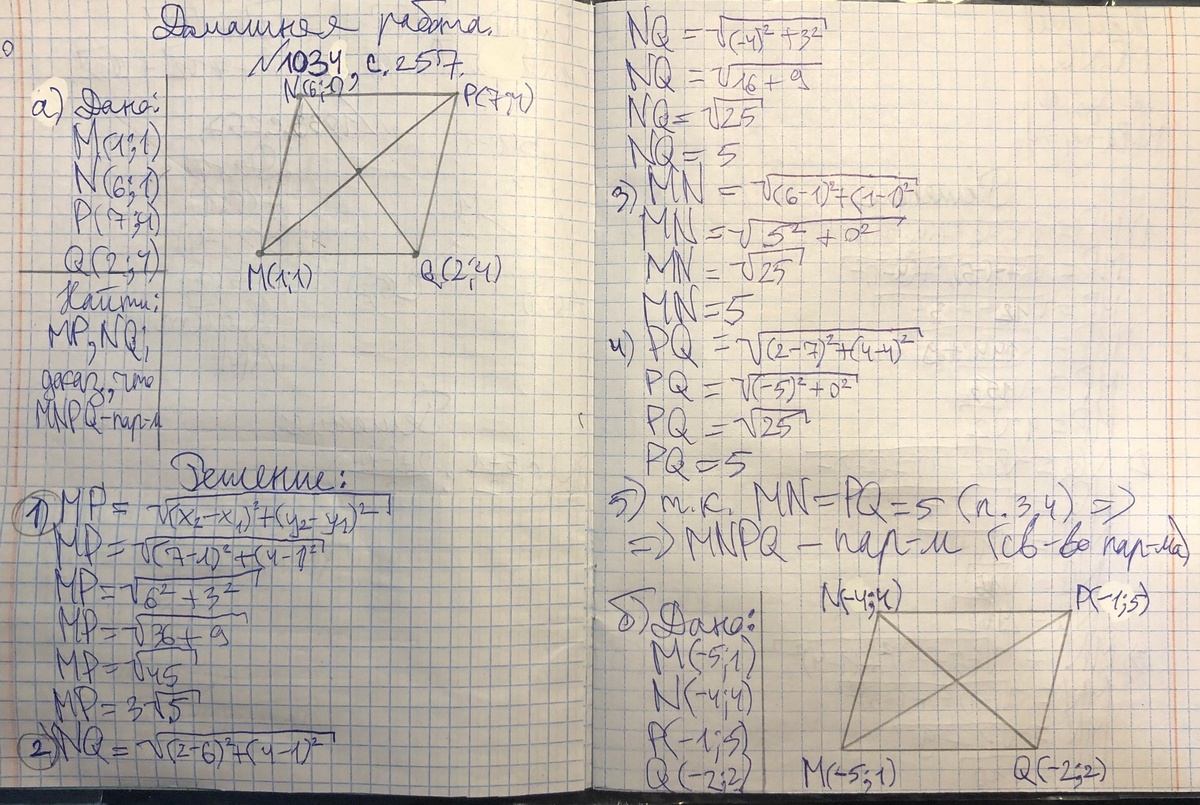 Домашняя работа.
№1034, с. 257.
а) Дано:
M(1;1)
N(6;1)
P(7;4)
Q(2;4)
Найти:
MP, NQ;
доказ, что
MNPQ-пар-м
N(6;1)
P(7;4)
M(1;1)
Q(2;4)
Решение:
1) MP = √(x₂-x₁)²+(y₂-y₁)²
MP = √(7-1)²+(4-1)²
MP = √6²+3²
MP = √36+9
MP = √45
MP = 3√5
2) NQ = √(2-6)²+(4-1)²
NQ = √(-4)²+3²
NQ = √16+9
NQ = √25
NQ = 5
3) MN = √(6-1)²+(1-1)²
MN = √5²+0²
MN = √25
MN = 5
4) PQ = √(2-7)²+(4-4)²
PQ = √(-5)²+0²
PQ = √25
PQ = 5
5) т.к. MN=PQ=5 (п. 3,4) =>
=> MNPQ - пар-м (св-во пар-ма)
б) Дано:
M(-5;1)
N(-4;4)
P(-1;5)
Q(-2;2)
N(-4;4)
P(-1;5)
M(-5;1)
Q(-2;2)